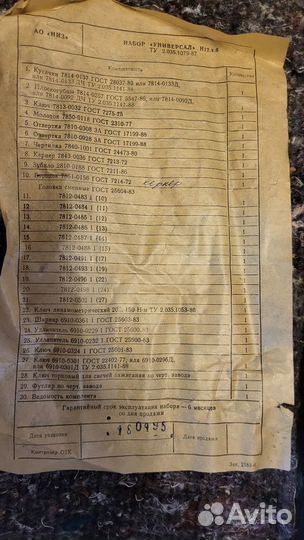 АО «НИЗ»
НАБОР «УНИВЕРСАЛ»
ТУ 2.035.1079-87
Комплектность
Количество
1. Кусачки 7814-0137 ГОСТ 28037-89 или 7814-0133Д,
ТУ 2.035.1141-88 1
2. Плоскогубцы ГОСТ 5547-86, или 7814-0092Д,
ТУ 2.035.1141-88 1
3. Ключ 7813-0032 ГОСТ 7275-75 1
4. Молоток 7850-0116 ГОСТ 2310-77 1
5. Отвертка 7810-0308 3А ГОСТ 17199-88 1
6. Отвертка 7810-0928 3А ГОСТ 17199-88 1
7. Чертилка 7840-1001 ГОСТ 24473-80 1
8. Кернер 7843-0036 ГОСТ 7213-72 1
9. Зубило 2810-0188 ГОСТ 7211-86 1
10. 7851-0156 ГОСТ 7214-72
Головки сменные ГОСТ 25604-83
11. 7812-0483 1 (10) 1
12. 7812-0484 1 (11) 1
13. 7812-0485 1 (12) 1
14. 7812-0486 1 (13) 1
15. 7812-0487 1 (14) 1
16. 7812-0488 1 1
17. 7812-0491 1 (17) 1
18. 7812-0493 1 1
19. 7812-0496 1 (22) 1
20. 7812-0498 1 (24) 1
21. 7812-0502 1 (27) 1
22. Ключ динамометрический 20... 150 Н·м ТУ 2.035.1053-86 1
23. Шарнир 6910-0361 ГОСТ 25603-83 1
24. Удлинитель 6910-0229 1 ГОСТ 25600-83 1
25. Удлинитель 6910-0232 1 ГОСТ 25600-83 1
26. Ключ 6910-0324 1 ГОСТ 25601-83 1
27. Ключ 6910-0301 ГОСТ 22402-77, или 6910-0296Д,
или 6910-0301Д ТУ 2.035.1141-88 1
28. Ключ торцовый для свечей зажигания по черт. завода 1
29. Футляр по черт. завода 1
30. Ведомость комплекта 1
Гарантийный срок эксплуатации набора — 6 месяцев
со дня продажи
Дата упаковки
Дата продажи
Контролер ОТК
Avito